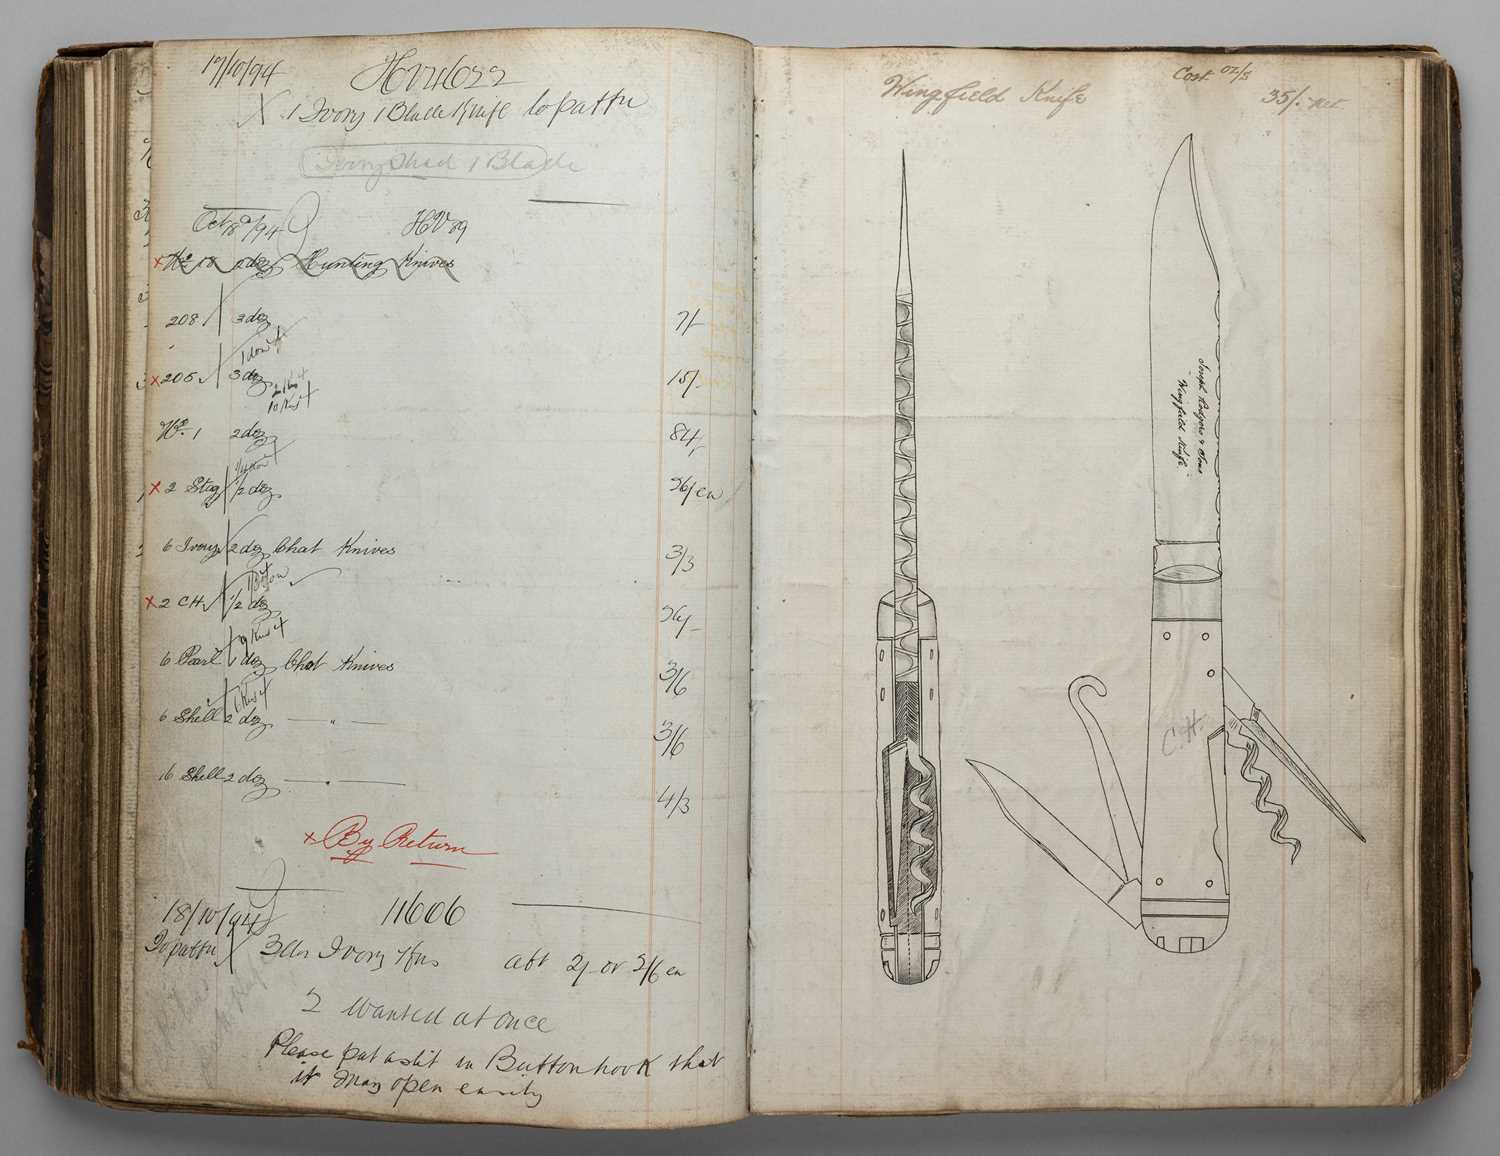 17/10/94
X 1 Ivory 1 Blade Knife to pattn
Ivory Shad 1 Blade
Oct 18th/94 HV 89
x No 18 1 doz Hunting Knives
208 3 doz 7/-
x 205 3 doz 15/-
No 1 2 doz 84/-
x 2 Stag 1/2 doz 36/ ea
6 Ivory 2 doz Chat Knives 3/3
x 2 CH 1/2 doz
6 Pearl 1 doz Chat Knives 3/6
6 Shell 2 doz — " — 3/6
16 Shell 2 doz — " — 4/3
x By Return
18/10/94 11606
To pattn X 3 dos Ivory abt 2/- or 2/6 ea
2 Wanted at once
Please put a slit in Button hook that
it may open easily
Wingfield Knife Cost
35/- net
Joseph Rodgers & Sons
"Wingfield Knife"
C.H.